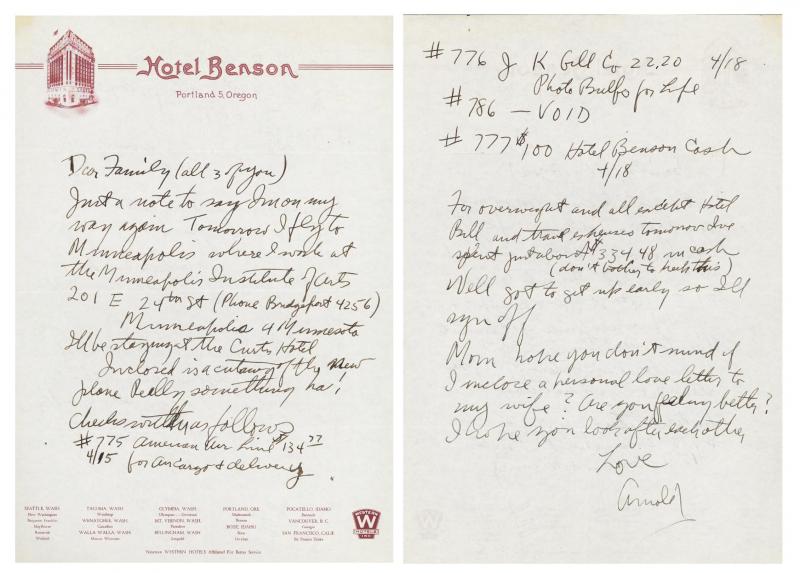 Hotel Benson
Portland 5, Oregon
Dear Family (all 3 of you)
Just a note to say I'm on my
way again Tomorrow I fly to
Minneapolis where I work at
the Minneapolis Institute of Arts
201 E 24th St (Phone Bridgeport 4256)
Minneapolis 4 Minnesota
I'll be staying at the Curtis Hotel
Inclosed is a cutaway of the new
plane Really something ha!
Checks written as follows
#775 American Air Line $134.77
4/15 for Air Cargo & delivery
SEATTLE, WASH.
New Washington
Benjamin Franklin
Mayflower
Roosevelt
TACOMA, WASH.
Winthrop
WENATCHEE, WASH.
Cascadian
WALLA WALLA, WASH.
Marcus Whitman
OLYMPIA, WASH.
Olympian - Governor
MT. VERNON, WASH.
BELLINGHAM, WASH.
Leopold
PORTLAND, ORE.
Multnomah
Benson
BOISE, IDAHO
Boise
Owyhee
POCATELLO, IDAHO
Bannock
VANCOUVER, B.C.
Georgia
SAN FRANCISCO, CALIF.
Sir Francis Drake
WESTERN
W
HOTELS
INC.
Nineteen WESTERN HOTELS Affiliated For Better Service
#776 J K Gill Co 22.20 4/18
Photo Bulbs for Life
#786 — VOID
#777 $100 Hotel Benson Cash
4/18
For overweight and all except Hotel
Bill and travel expenses tomorrow I've
spent just about $334.48 in cash
(don't bother to check this)
Well got to get up early so I'll
sign off
Mom hope you don't mind if
I inclose a personal love letter to
my wife? Are you feeling better?
I hope you look after each other
Love
Arnold